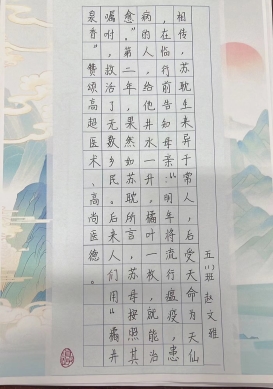 相传，苏耽生来异于常人，后受天命为天仙
，在临行前告知母亲：“明年将流行瘟疫，患
病的人，给他井水一升，橘叶一枚，就能治
愈。”第二年，果然如苏耽所言，苏母按照其
嘱咐，救治了无数乡民。后来人们用“橘井
泉香”，赞颂高超医术、高尚医德。
五(3)班 赵文雅